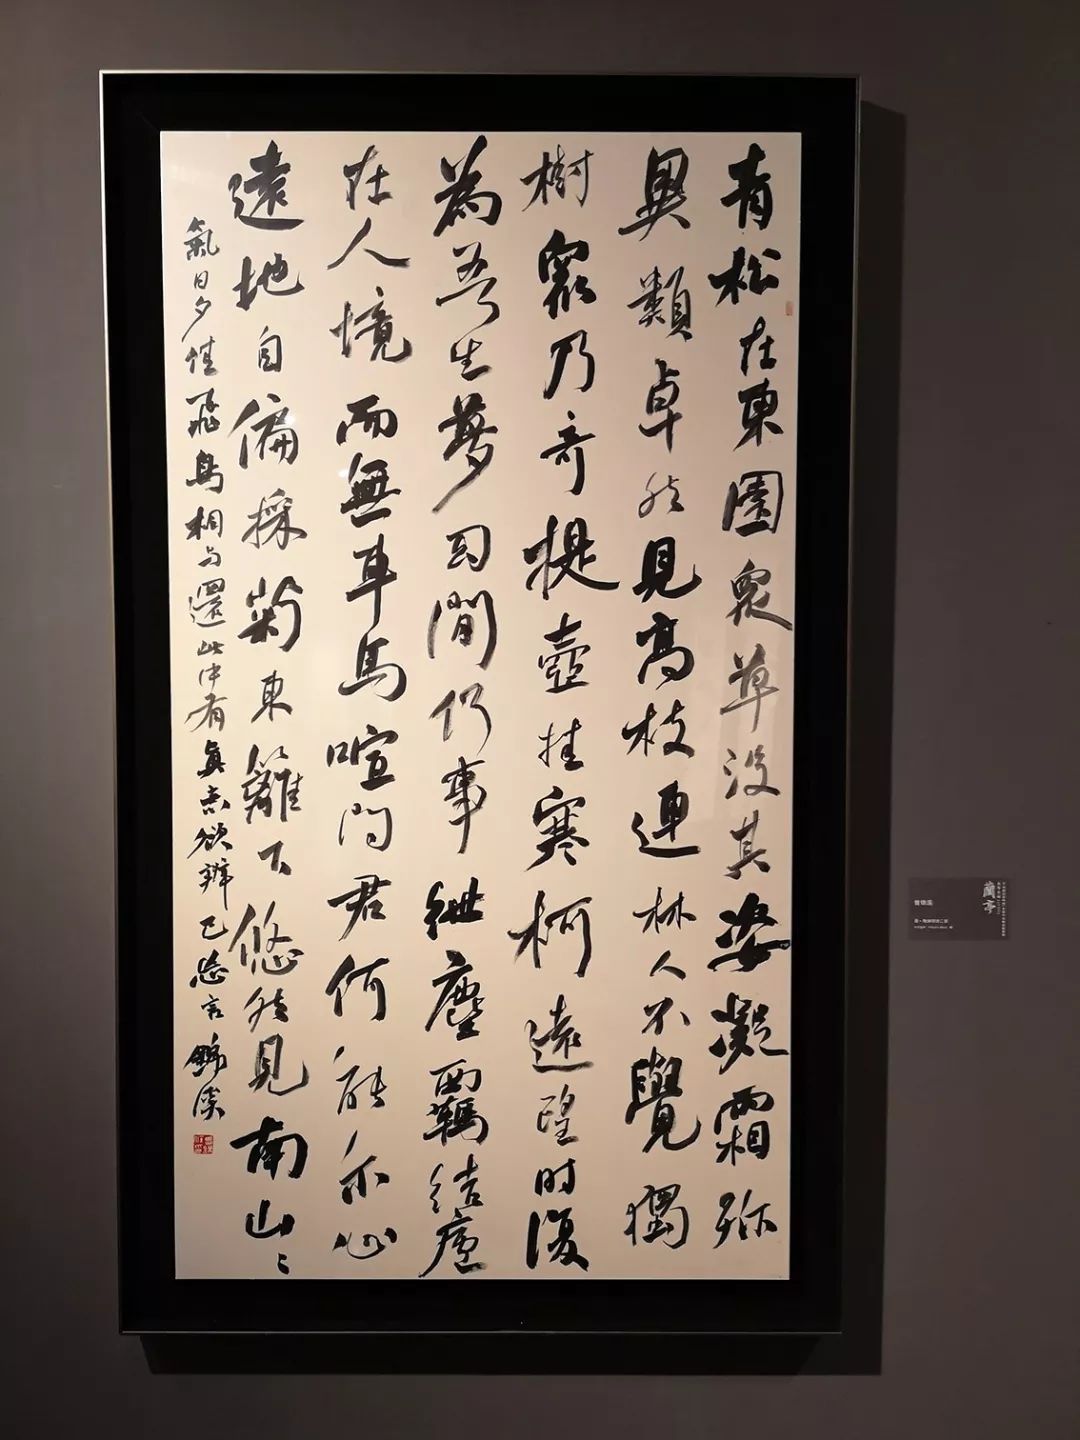 青松在東園眾草没其姿凝霜殄
異類卓然見高枝連林人不覺獨
樹衆乃奇提壺挂寒柯遠望時復
為吾生夢幻間仍事紲塵羈結廬
在人境而無車馬喧問君何能尔心
遠地自偏採菊東籬下悠然見南山〻
氣日夕佳飛鳥相与還此中有真意欲辨已忘言 錦溪
蘭亭
曾锦溪